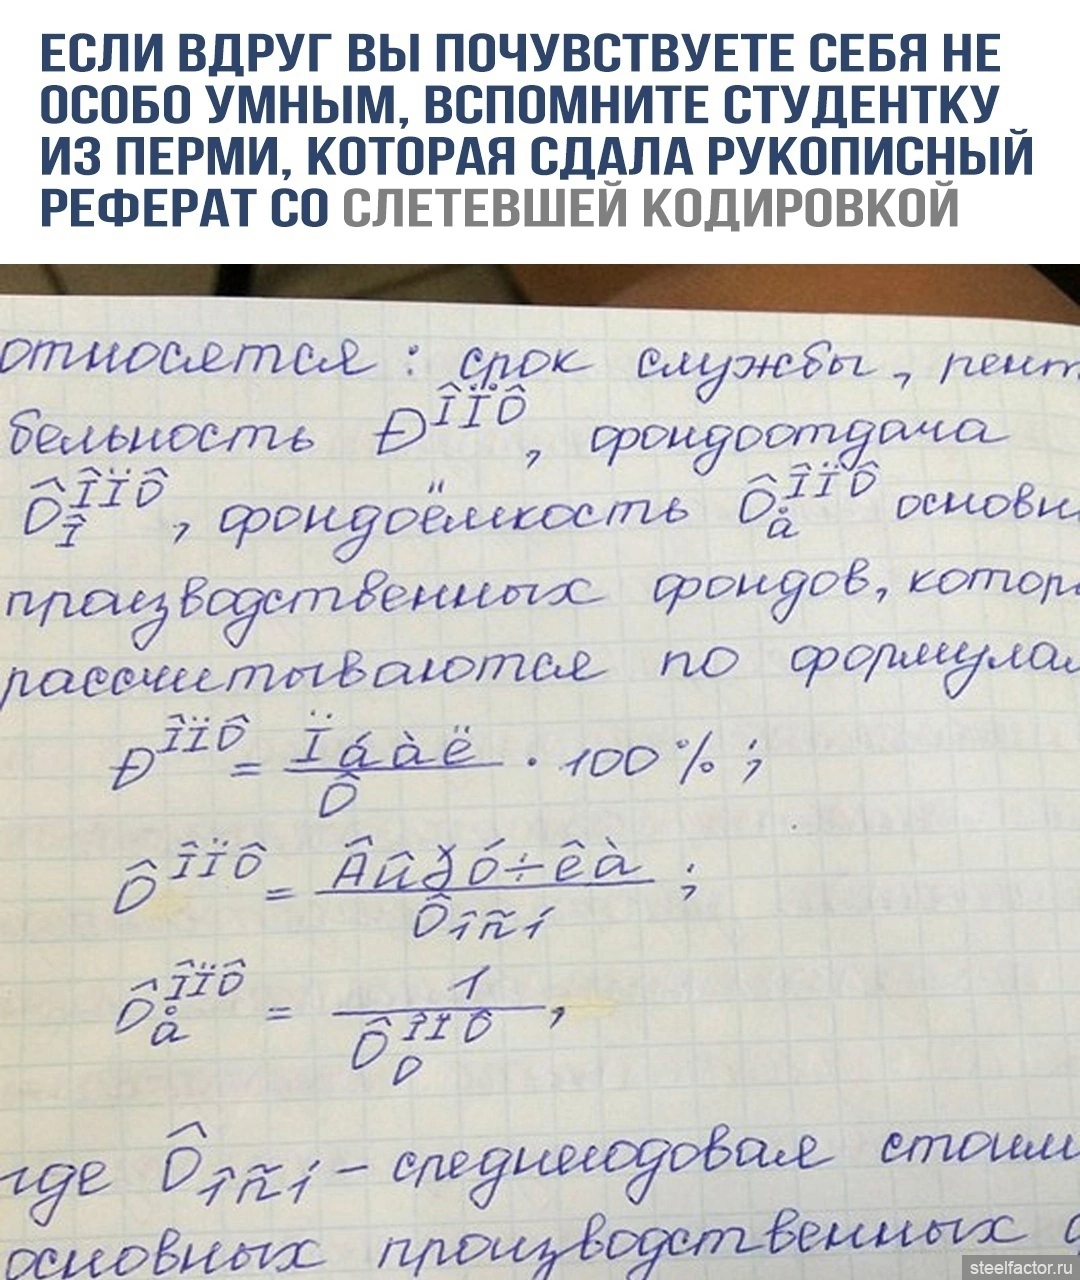 ЕСЛИ ВДРУГ ВЫ ПОЧУВСТВУЕТЕ СЕБЯ НЕ
ОСОБО УМНЫМ, ВСПОМНИТЕ СТУДЕНТКУ
ИЗ ПЕРМИ, КОТОРАЯ СДАЛА РУКОПИСНЫЙ
РЕФЕРАТ СО СЛЕТЕВШЕЙ КОДИРОВКОЙ
относятся: срок службы, рент
бельность Ð^ÎÏÔ, фондоотдача
Ô_Î^ÎÏÔ, фондоёмкость Ô_å^ÎÏÔ основн
производственных фондов, котор
рассчитываются по формулам
Ð^ÎÏÔ = Ïáàë / Ô · 100%;
Ô^ÎÏÔ = Âûðó÷êà / Ôîñí ;
Ô_å^ÎÏÔ = 1 / Ô_D^ÎÏÔ ,
где Ôîñí – среднегодовая стоим
основных производственных
steelfactor.ru